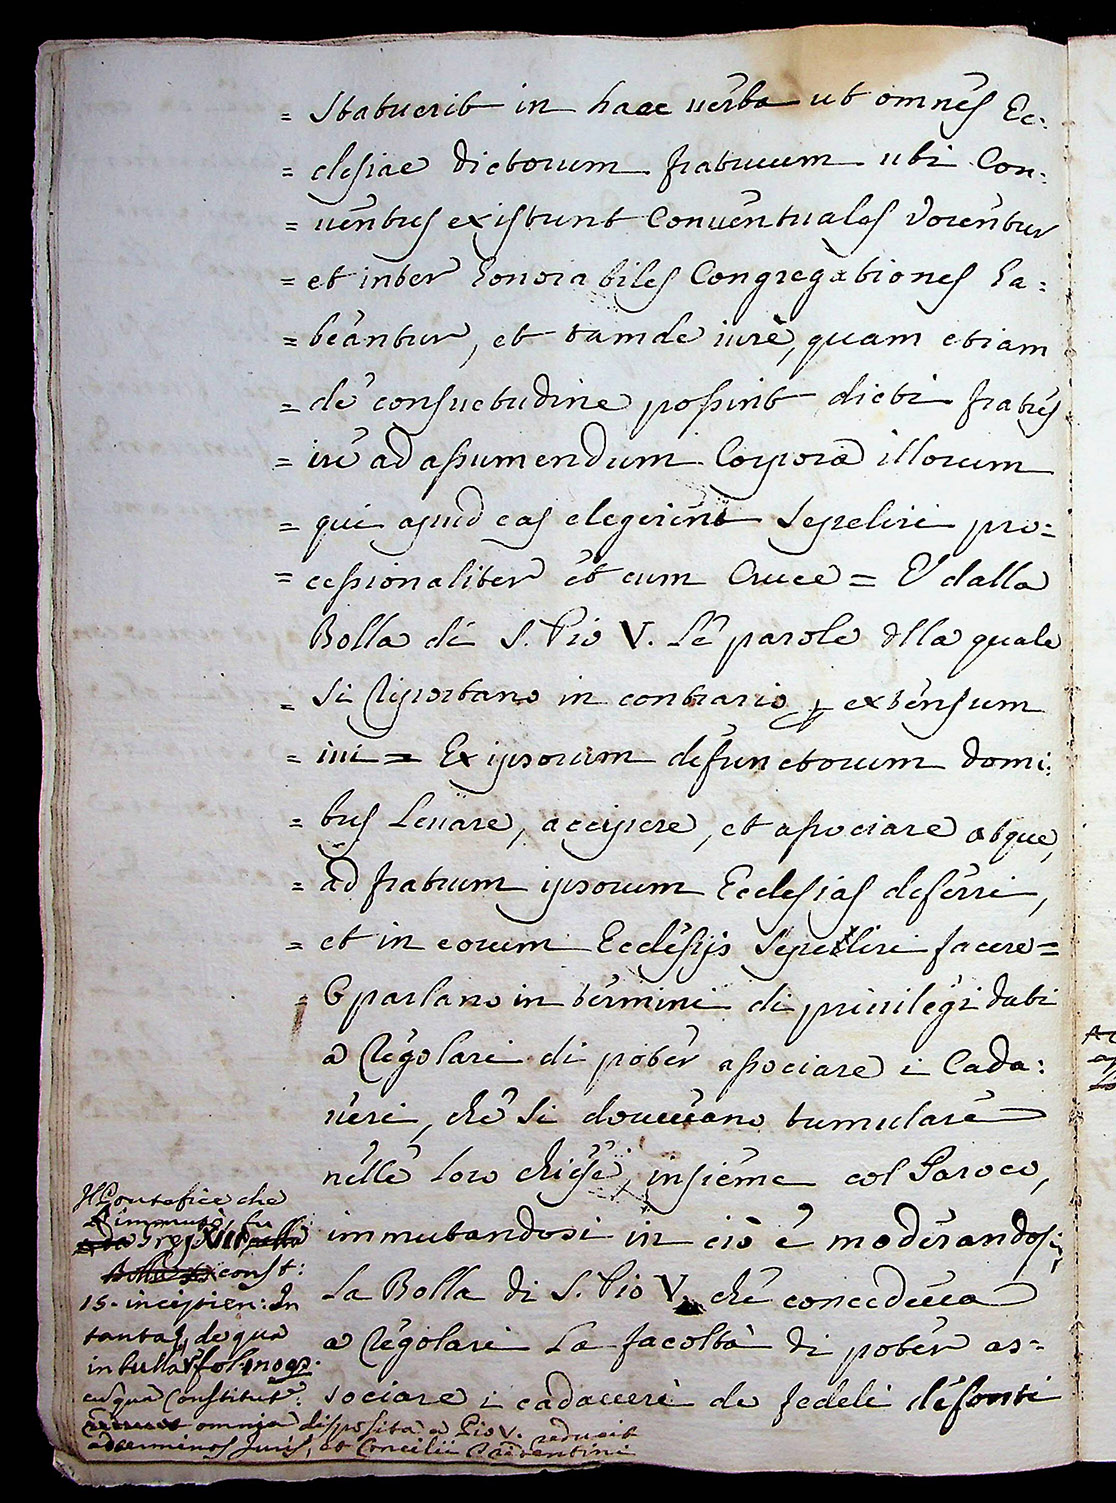 = statuerit in haec verba ut omnes Ec:
= clesiae dictorum fratruum ubi Con:
= ventus existunt Conventuales vocentur
= et inter honorabiles Congregationes ha:
= beantur, et tam de iure, quam etiam
= de consuetudine possint dicti fratres
= ire ad assumendum Corpora illorum
= qui apud eas elegerint sepeliri pro=
= cessionaliter et cum Cruce = E dalla
Bolla di S. Pio V. Le parole dlla quale
= si riportano in contrario p extensum
= ivi = Ex ipsorum defunctorum domi:
= bus levare, accipere, et associare atque,
= ad fratrum ipsorum Ecclesias deferri,
= et in eorum Ecclesijs sepeliri facere =
= E parlano in termini di privilegi dati
a Regolari di poter associare i Cada:
veri, che si dovevano tumulare
nelle loro chiese, insieme col Paroco,
immutandosi in ciò e moderandosi
La Bolla di S. Pio V. che concedeva
a Regolari La facoltà di poter as=
sociare i cadaveri de fedeli defonti
Il Pontefice che
l'immutò, fu
Greg. XIII
const:
15. incipien: In
tanta, de qua
in bulla fol.
eius qua Constitut.e
omnia disposita a Pio V. reducit
ad terminos Juris, et Concilii Tridentini